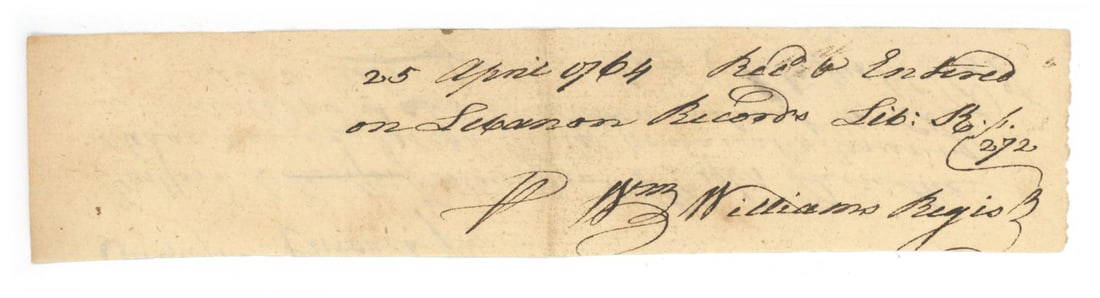 25 April 1764 Recd & Entered
on Lebanon Records Lib: R. p.
272
P Wm Williams Regisr